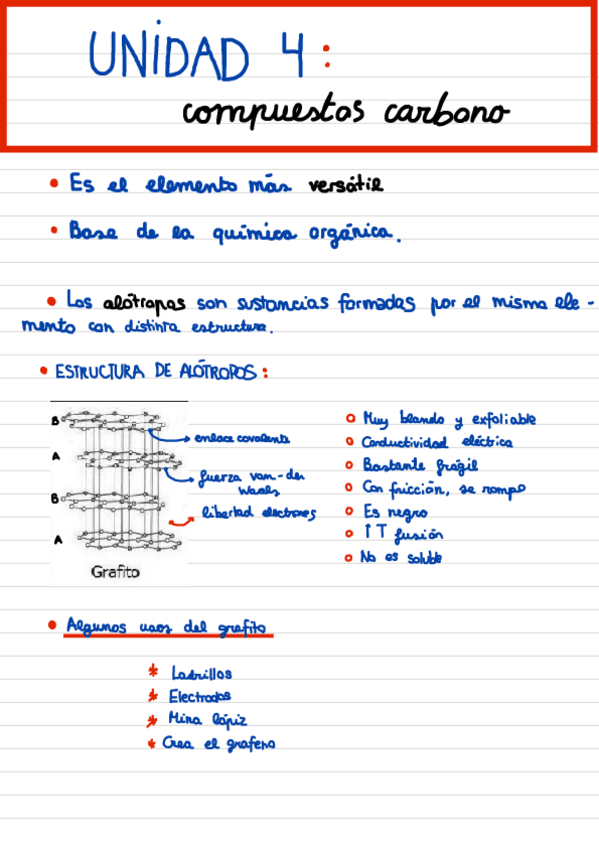 UNIDAD 4:
compuestos carbono
• Es el elemento más versátil
• Base de la química orgánica.
• Los alótropos son sustancias formadas por el mismo ele-
mento con distinta estructura.
• ESTRUCTURA DE ALÓTROPOS:
B
A
B
A
enlace covalente
fuerza van-der
Waals
libertad electrones
Grafito
o Muy blando y exfoliable
o Conductividad eléctrica
o Bastante frágil
o Con fricción, se rompe
o Es negro
o ↑T fusión
o No es soluble
• Algunos usos del grafito
* Ladrillos
* Electrodos
* Mina lápiz
* Crea el grafeno